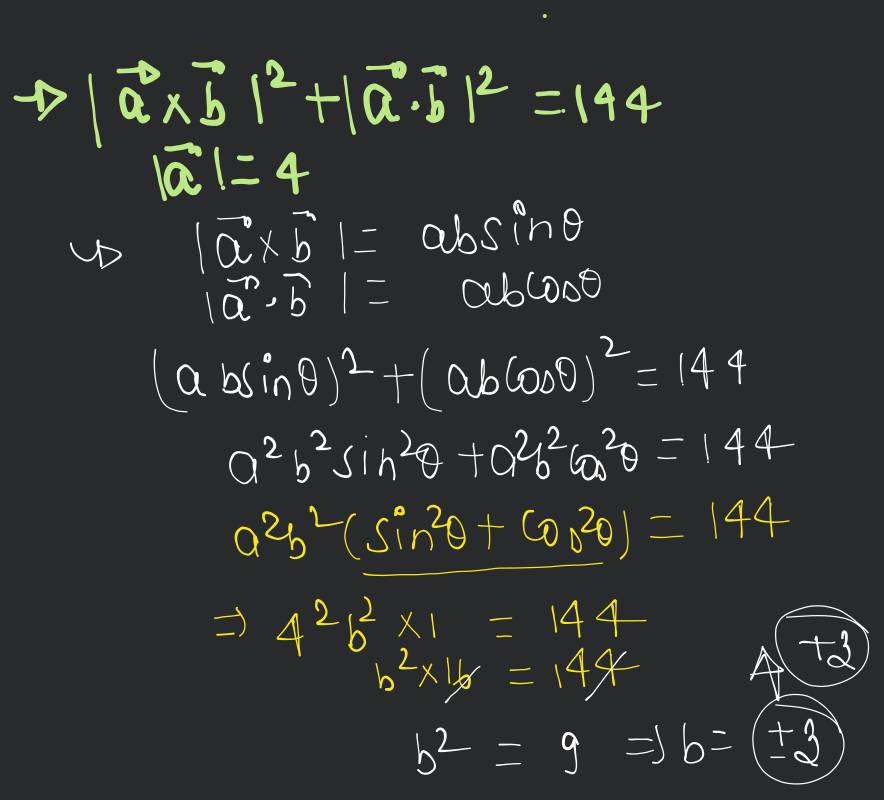 → |a⃗ × b⃗|² + |a⃗ · b⃗|² = 144
|a⃗| = 4
↪ |a⃗ × b⃗| = absinθ
|a⃗ · b⃗| = abcosθ
(absinθ)² + (abcosθ)² = 144
a²b²sin²θ + a²b²cos²θ = 144
a²b²(sin²θ + cos²θ) = 144
⇒ 4²b² × 1 = 144
b² × 16 = 144
+3
b² = 9 ⇒ b = ±3